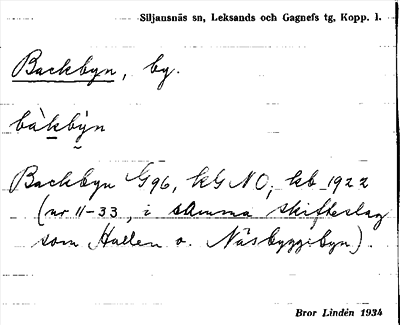 Siljansnäs sn, Leksands och Gagnefs tg, Kopp. l.
Backbyn, by.
bàkby̆n
Backbyn G96, kG NO, kb 1922
(nr 11-33, i samma skifteslag
som Hallen o. Näsbyggebyn).
Bror Lindén 1934